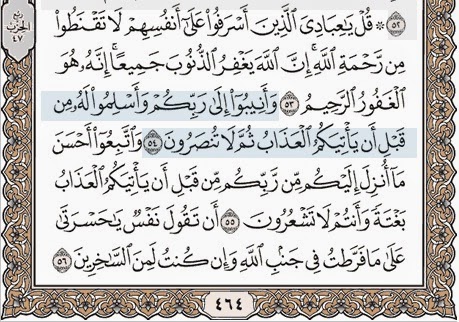 ٥٢ * قُلْ يَٰعِبَادِيَ ٱلَّذِينَ أَسْرَفُوا۟ عَلَىٰٓ أَنفُسِهِمْ لَا تَقْنَطُوا۟
مِن رَّحْمَةِ ٱللَّهِ ۚ إِنَّ ٱللَّهَ يَغْفِرُ ٱلذُّنُوبَ جَمِيعًا ۚ إِنَّهُۥ هُوَ
ٱلْغَفُورُ ٱلرَّحِيمُ ٥٣ وَأَنِيبُوٓا۟ إِلَىٰ رَبِّكُمْ وَأَسْلِمُوا۟ لَهُۥ مِن
قَبْلِ أَن يَأْتِيَكُمُ ٱلْعَذَابُ ثُمَّ لَا تُنصَرُونَ ٥٤ وَٱتَّبِعُوٓا۟ أَحْسَنَ
مَآ أُنزِلَ إِلَيْكُم مِّن رَّبِّكُم مِّن قَبْلِ أَن يَأْتِيَكُمُ ٱلْعَذَابُ
بَغْتَةً وَأَنتُمْ لَا تَشْعُرُونَ ٥٥ أَن تَقُولَ نَفْسٌ يَٰحَسْرَتَىٰ
عَلَىٰ مَا فَرَّطتُ فِى جَنۢبِ ٱللَّهِ وَإِن كُنتُ لَمِنَ ٱلسَّٰخِرِينَ ٥٦
ربع
الحزب
٤٧
٤٦٤